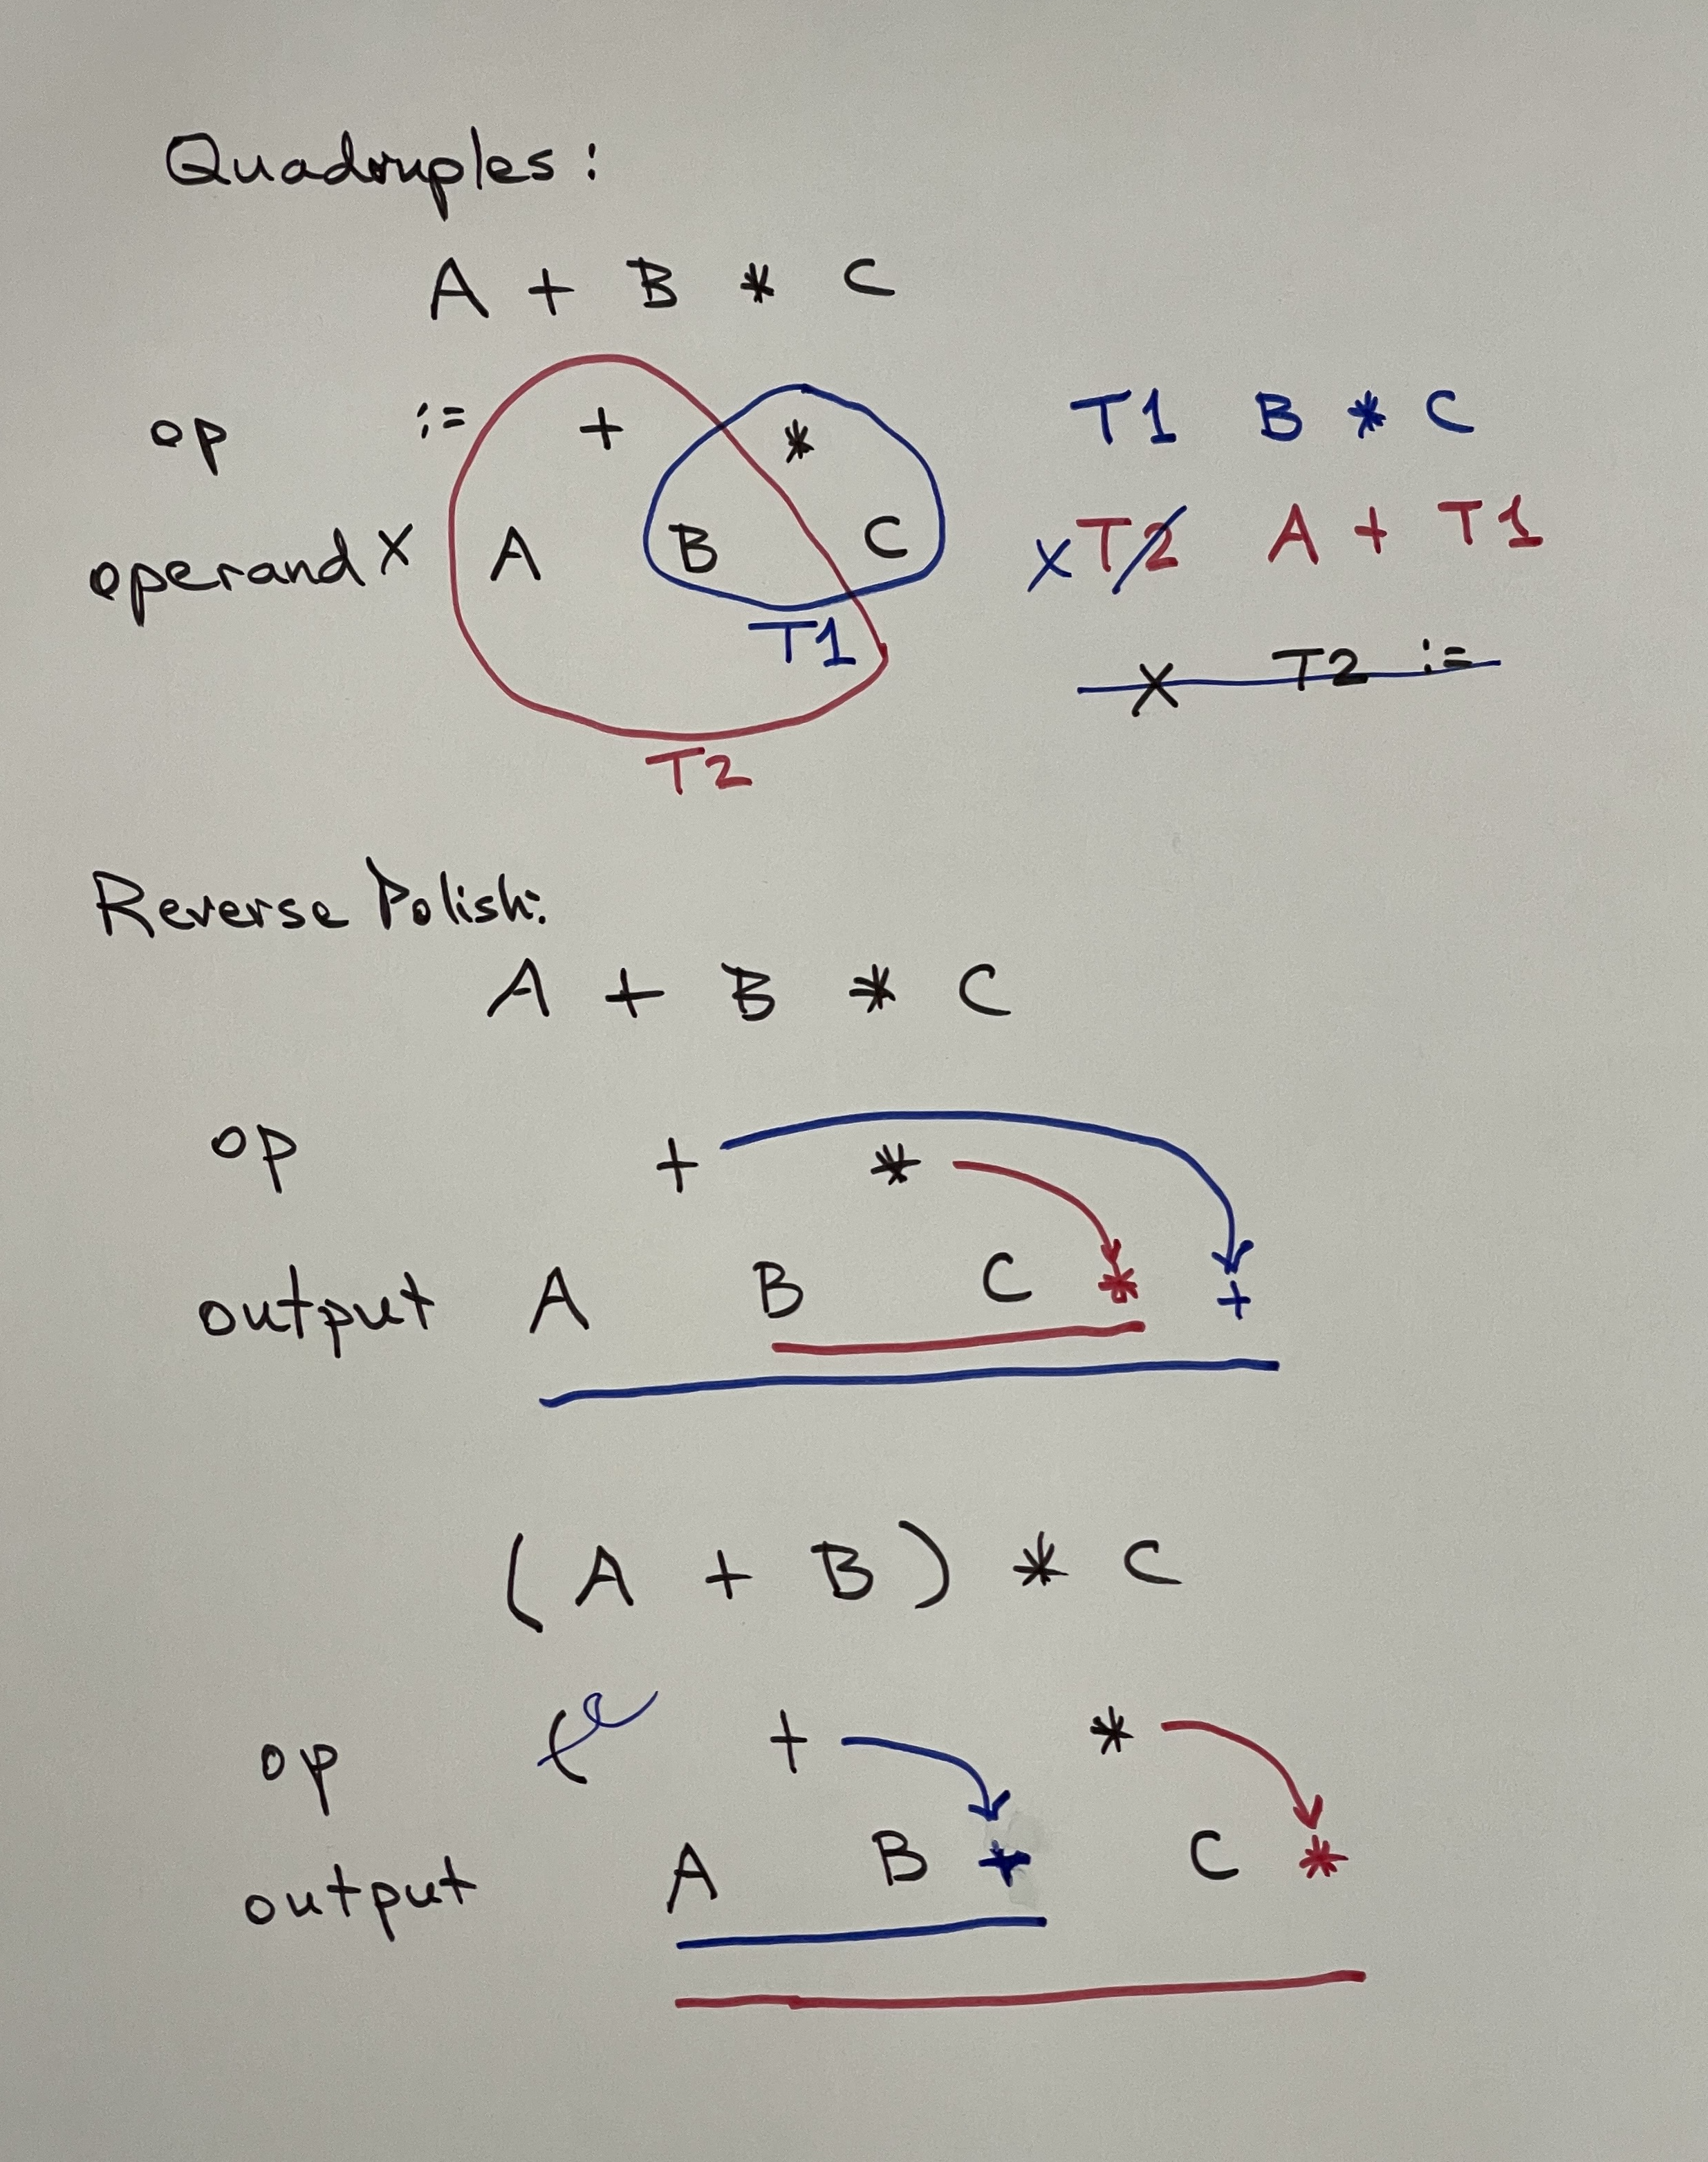 Quadruples:
A + B * C
op := + *
operand X A B C
T1
T2
T1 B * C
X T2 A + T1
X T2 :=
Reverse Polish:
A + B * C
op + *
output A B C * +
(A + B) * C
op ( + *
output A B + C *